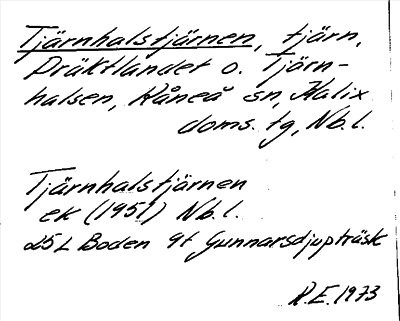 Tjärnhalstjärnen, tjärn,
Präktlandet o. Tjärn-
halsen, Råneå sn, Kalix
doms. tg, Nb.l.
Tjärnhalstjärnen
ek (1951) Nb.l.
25 L Boden 9f Gunnarsdjupträsk
R.E. 1973